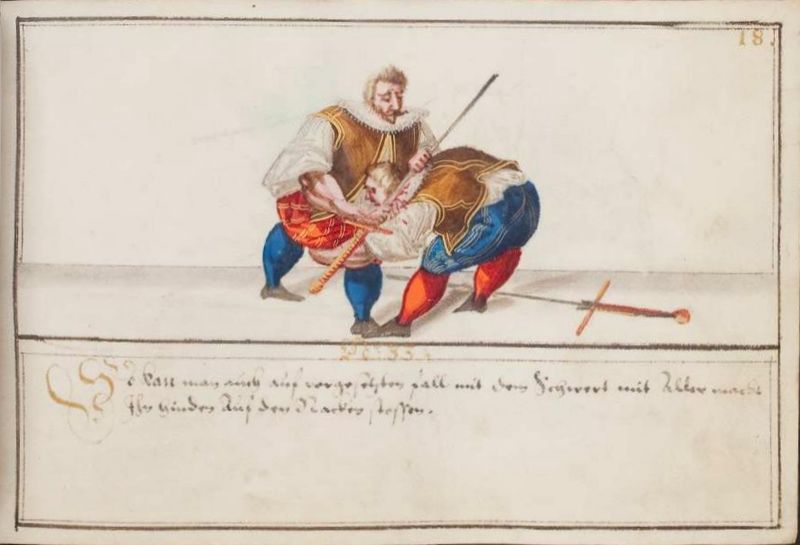 18.
No: 33.
So kan man auch auf vorgesetzten fall mit dem Schwert mit Aller macht
Ihn hinden Auf den Nacken stossen.